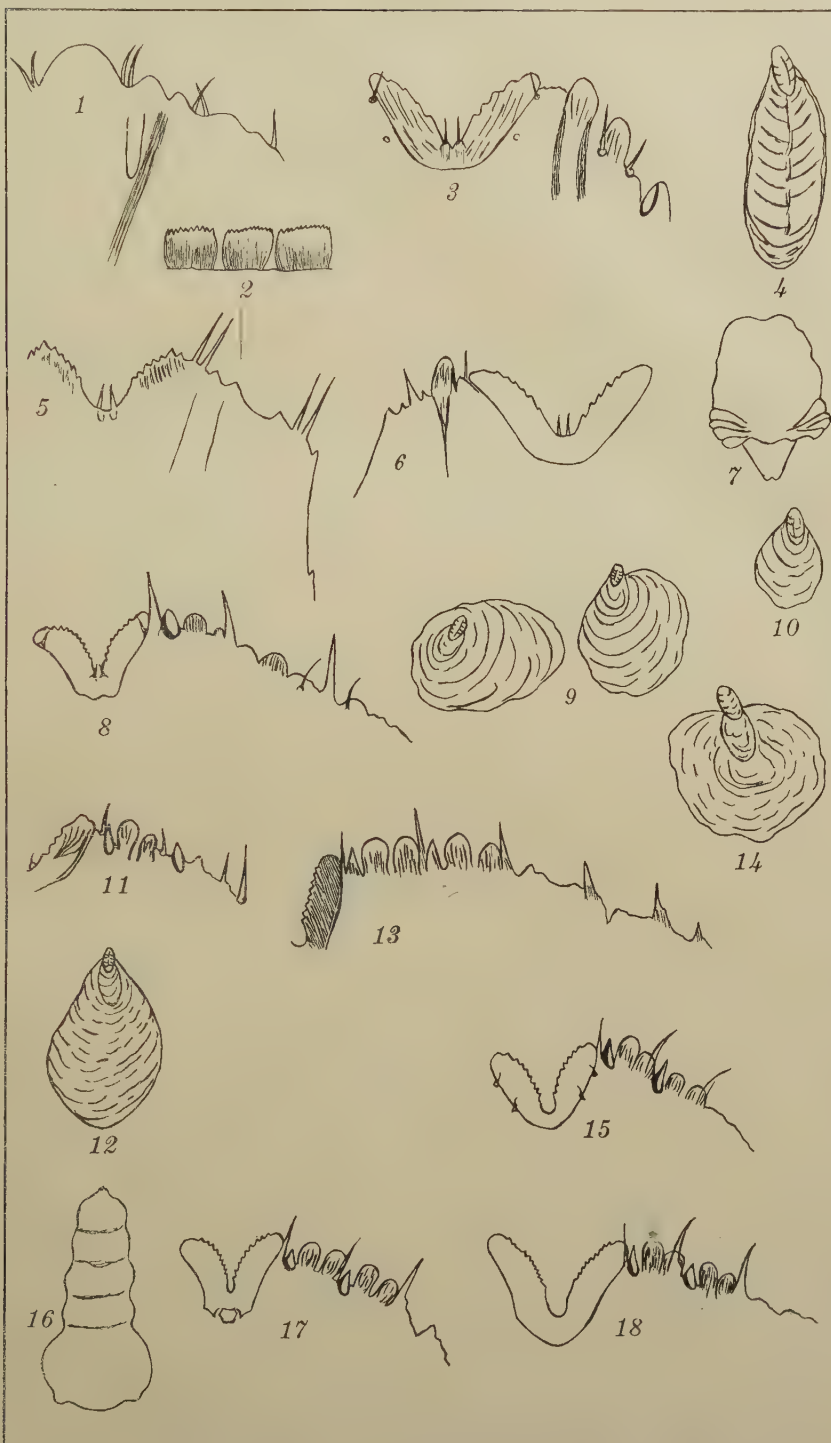 1
3
4
2
5
6
7
10
8
9
14
11
13
12
15
16
17
18